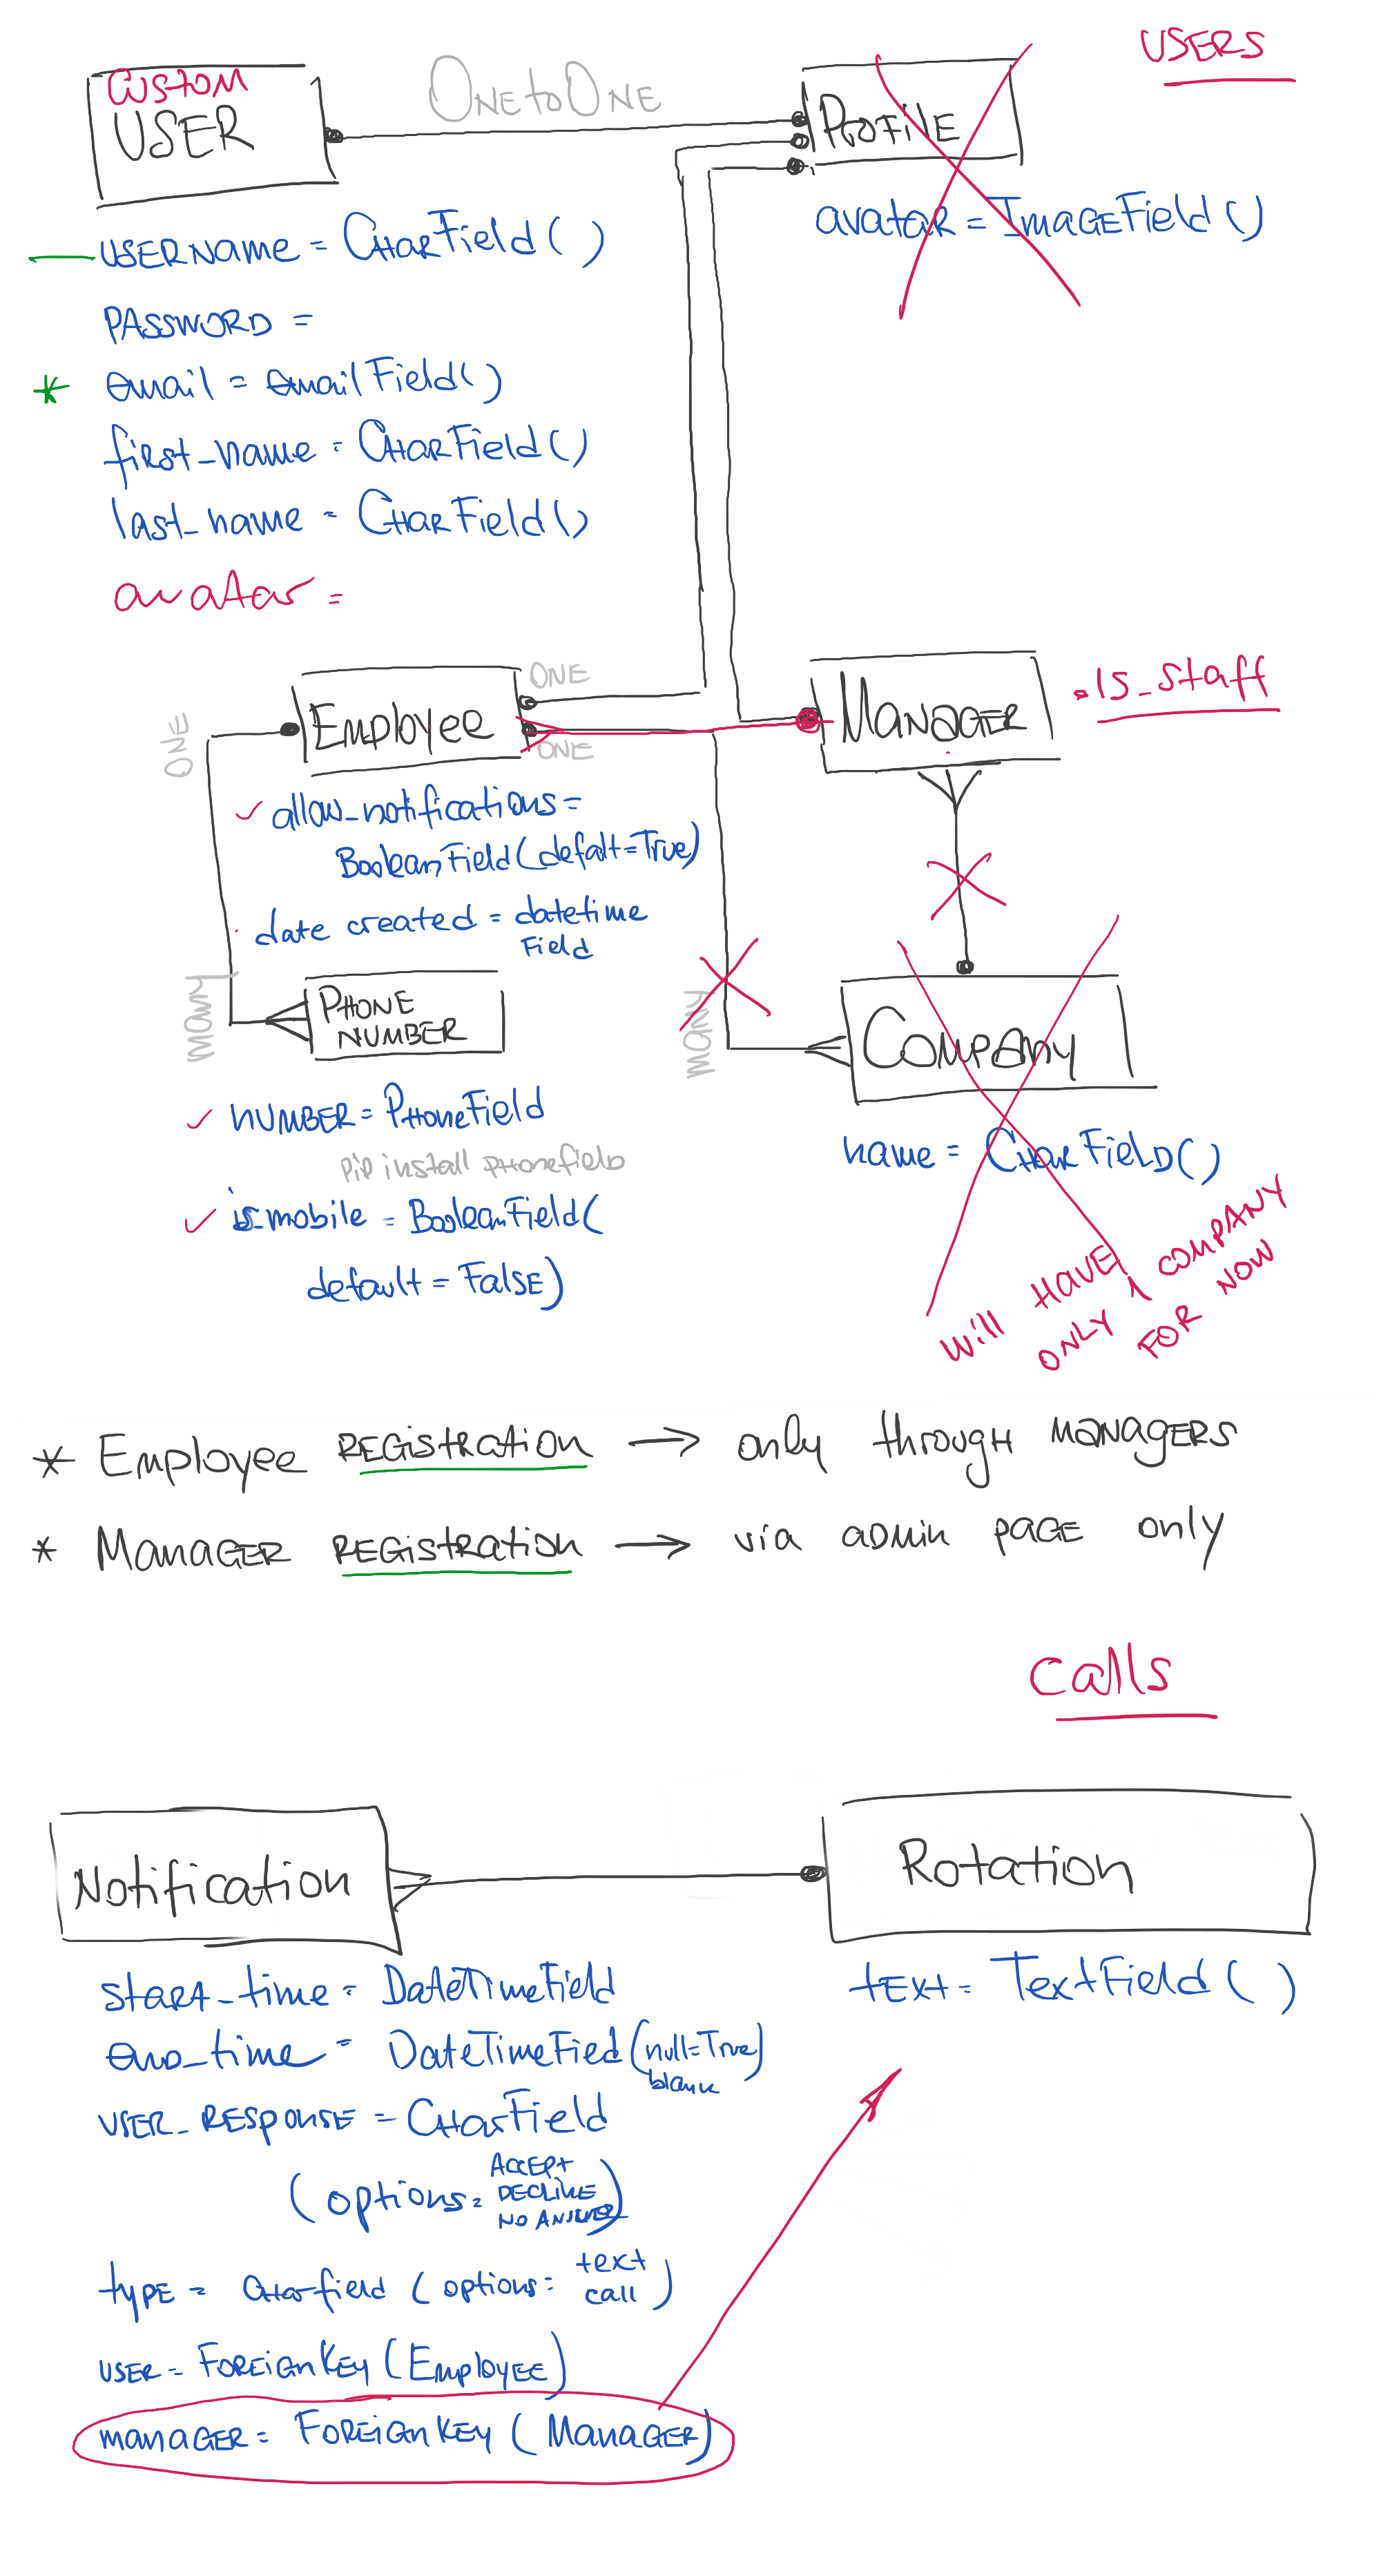 USERS
Custom
USER
OneToOne
Profile
username = CharField()
avatar = ImageField()
password =
email = emailField()
first_name = CharField()
last_name = CharField()
avatar =
ONE
Employee
Manager
.is_staff
ONE
ONE
allow_notifications =
BooleanField(defalt=True)
date created = datetime
Field
MANY
Phone
Number
MANY
Company
number = PhoneField
pip install phonefield
name = CharField()
is_mobile = BooleanField(
default = False)
will HAVE
ONLY 1 COMPANY
FOR NOW
* Employee REGISTRATION → only through MANAGERS
* Manager REGISTRATION → via admin page only
Calls
Notification
Rotation
start_time = DateTimeField
text = TextField()
end_time = DateTimeFied(null=True
blank)
user_response = CharField
(options = ACCEPT
DECLINE
NO ANSWER)
type = Charfield (options = text
call)
user = ForeignKey(Employee)
manager = ForeignKey(Manager)